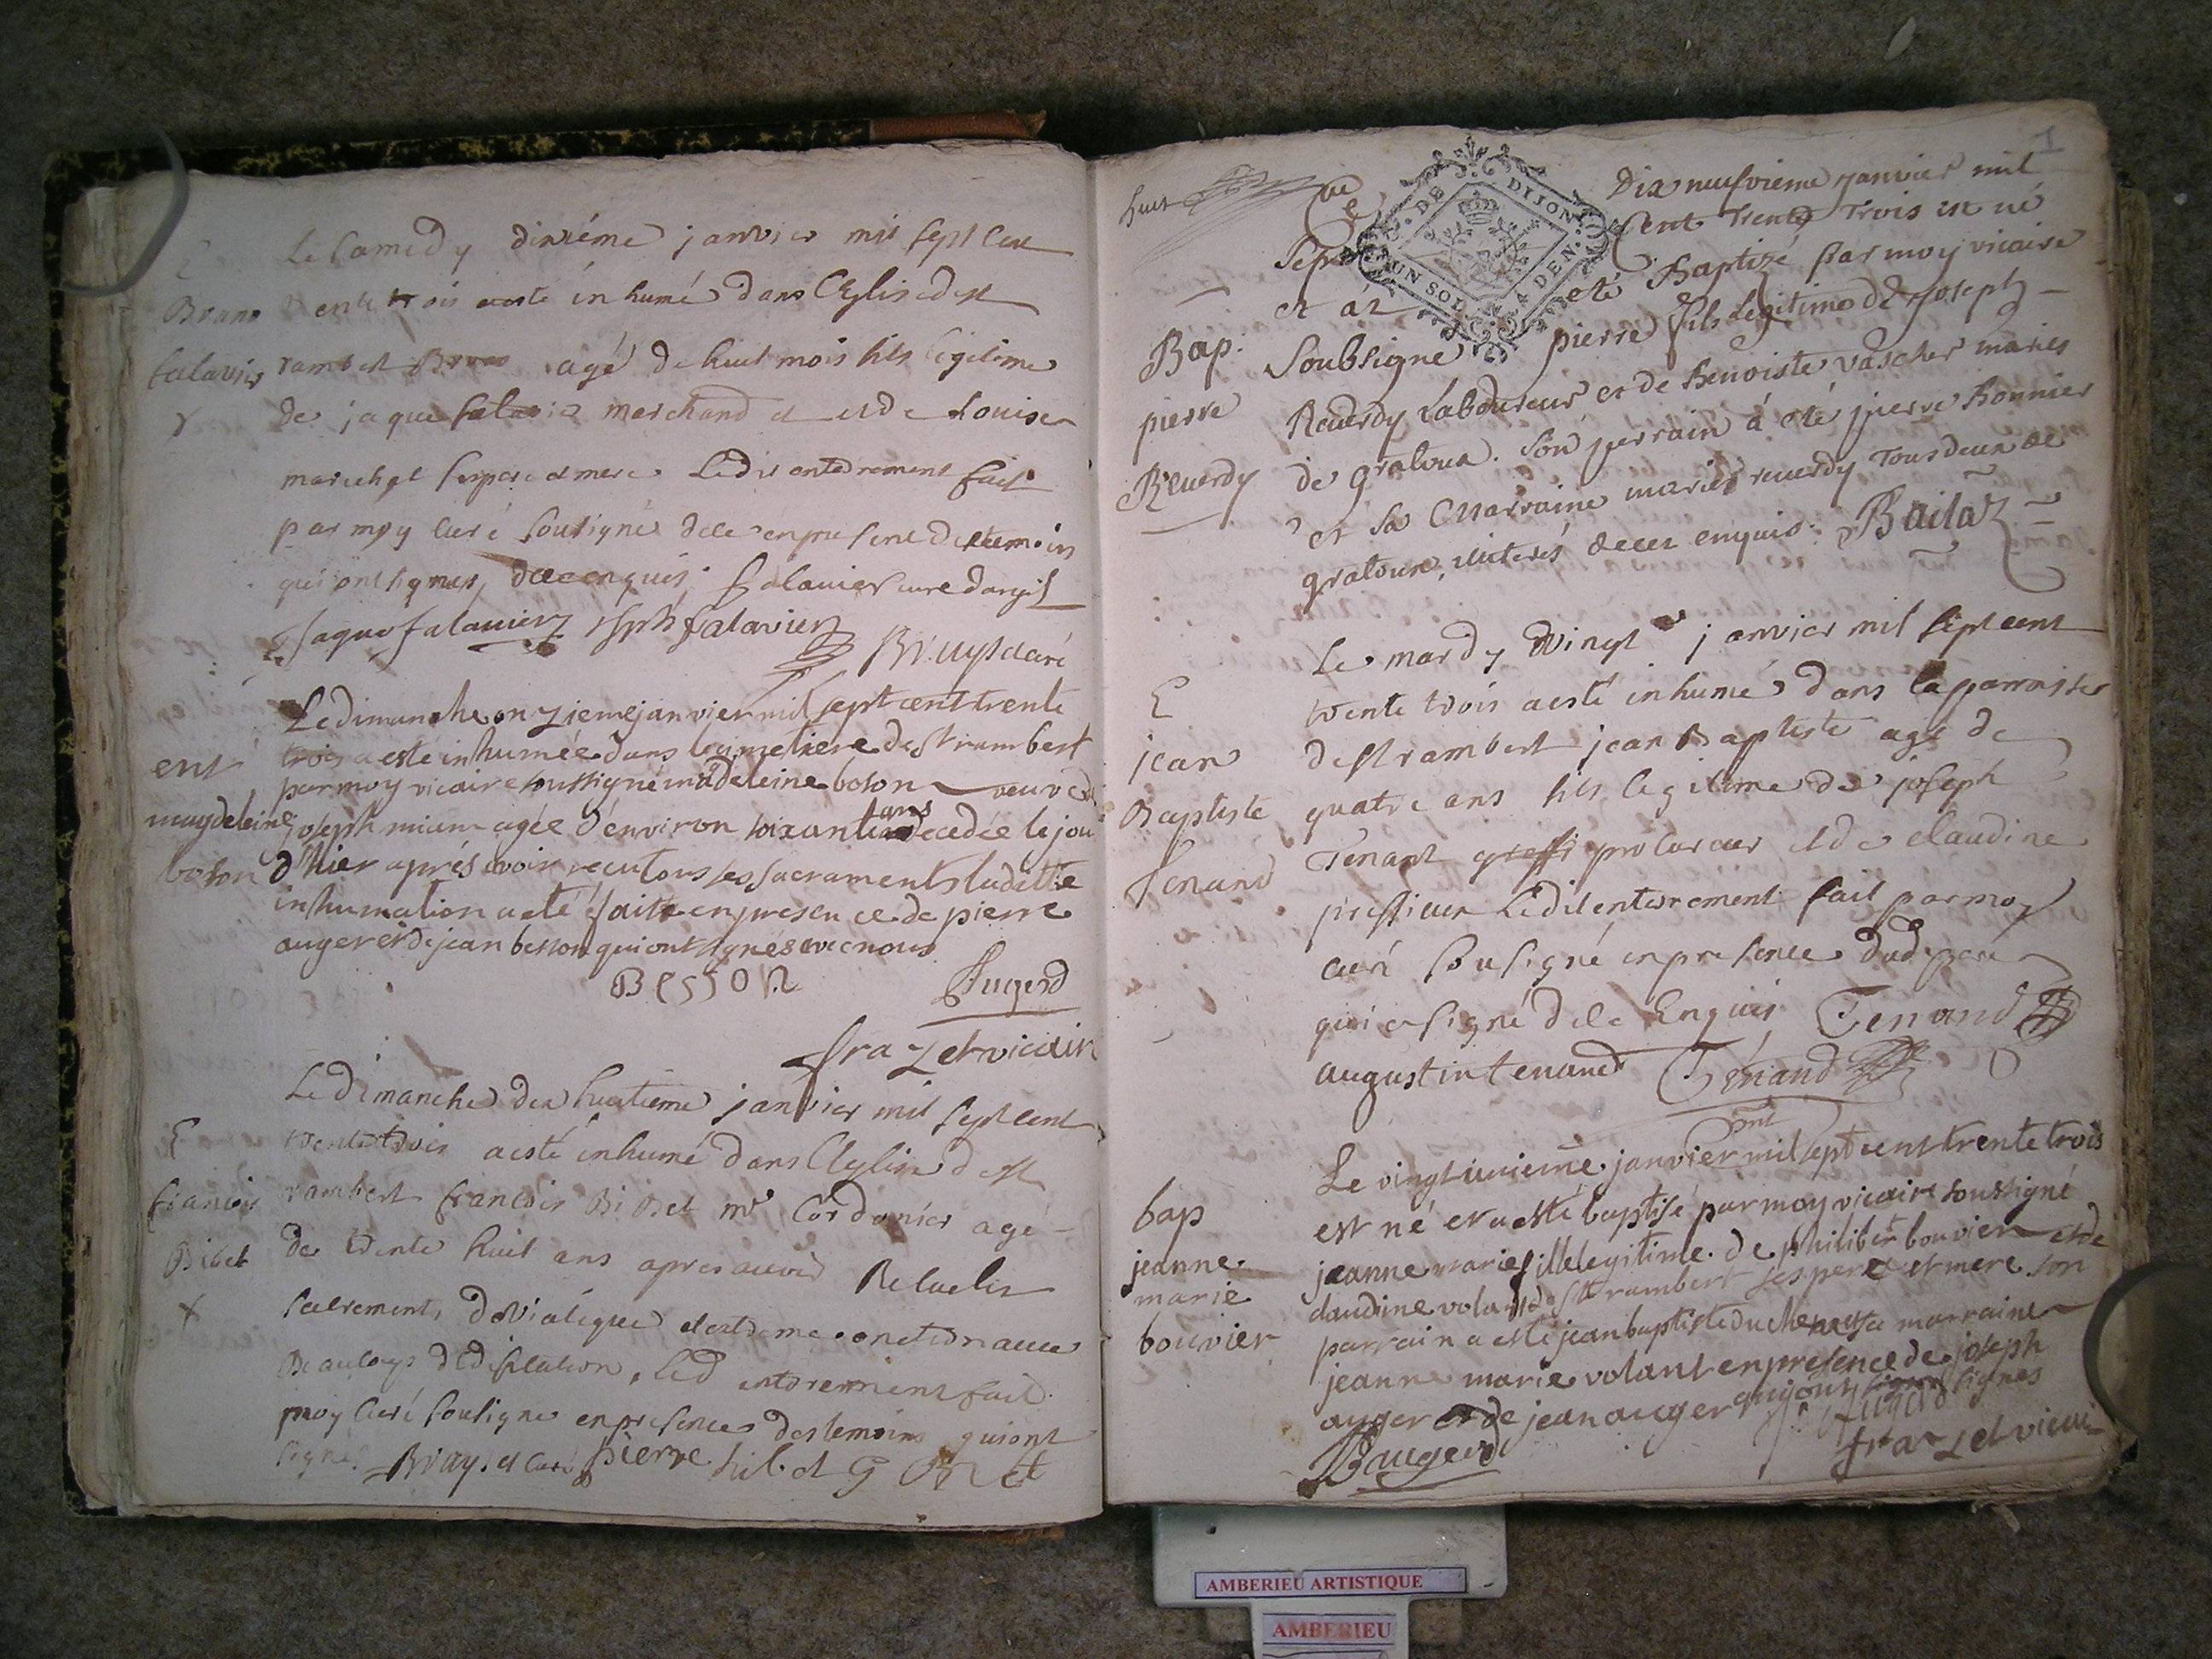 Le samedy dixiéme janvier mil sept cent
Bruno
trente trois a esté inhumé dans l'Eglise de st
falavier
rambert Bruno agé de huit mois fils legitime
de jaque falavier marchand et de Louise
marechal ses pere et mere Ledit enterrement fait
par moy curé sousigné en presence des temoins
qui ont signes, de ce enquis. falavier curé
Jaque falavier falavier
Bruyset curé
Le dimanche onzieme janvier mil sept cent trente
trois a esté inhumée dans le cimetiere de St rambert
ent
par moy vicaire soussigné madeleine boson veuve de
magdeleine
joseph agée d'environ soixante ans decedée le jour
boson
d'hier aprés avoir recu tous les sacraments laditte
inhumation a eté faitte en presence de pierre
auger et de jean besson qui ont signés avec nous
Besson Augerd
frazet vicair
Le dimanche dix huitieme janvier mil sept cent
E
trente trois a esté inhumé dans l'Eglise de st
francois
rambert francois Bibet mr Cordonier agé
Bibet
de trente huit ans apres avoir Receu les
sacrements de viatique et extreme onction avec
Beaucoup d'edification, led enterrement fait
moy curé sousigné en presence des temoins qui ont
signé. curé pierre
1
Dix neufvieme janvier mil
Sept Cent Trente Trois est né
et a eté Baptizé par moy vicaire
Bap:
Soubsigné pierre fils legitime de Joseph
pierre
Reverdy Laboureur et de Benoiste vascher mariés
Reverdy
de gratoux. Son parrain à eté pierre Bonnier
et sa Marraine marie reverdy Tous deux de
gratoux, illiterés de ce enquis. Bailat
DE DIJON
UN SOL 4 DEN.
Le mardy vingt janvier mil sept cent
E
trente trois a esté inhumé dans la parroisse
jean
de st rambert jean Baptiste agé de
Baptiste
quatre ans fils legitime de joseph
Tenand
Tenant procureur et de claudine
Ledit enterrement fait par moy
curé sousigné en presence dud pere
qui a signé de ce Enquis Tenand
augustin tenand Tenand
Le vingt unieme janvier mil sept cent trente trois
bap
est né et a esté baptisé par moy vicaire soussigné
jeanne
jeanne marie fille legitime de philibert bouvier et de
marie
claudine volant de St rambert ses pere et mere son
bouvier
parrain a esté jean baptiste duchene sa marraine
jeanne marie volant en presence de joseph
auger et de jean auger qui ont signés
Augerd
Augerd
frazet vicair
AMBERIEU ARTISTIQUE
AMBERIEU